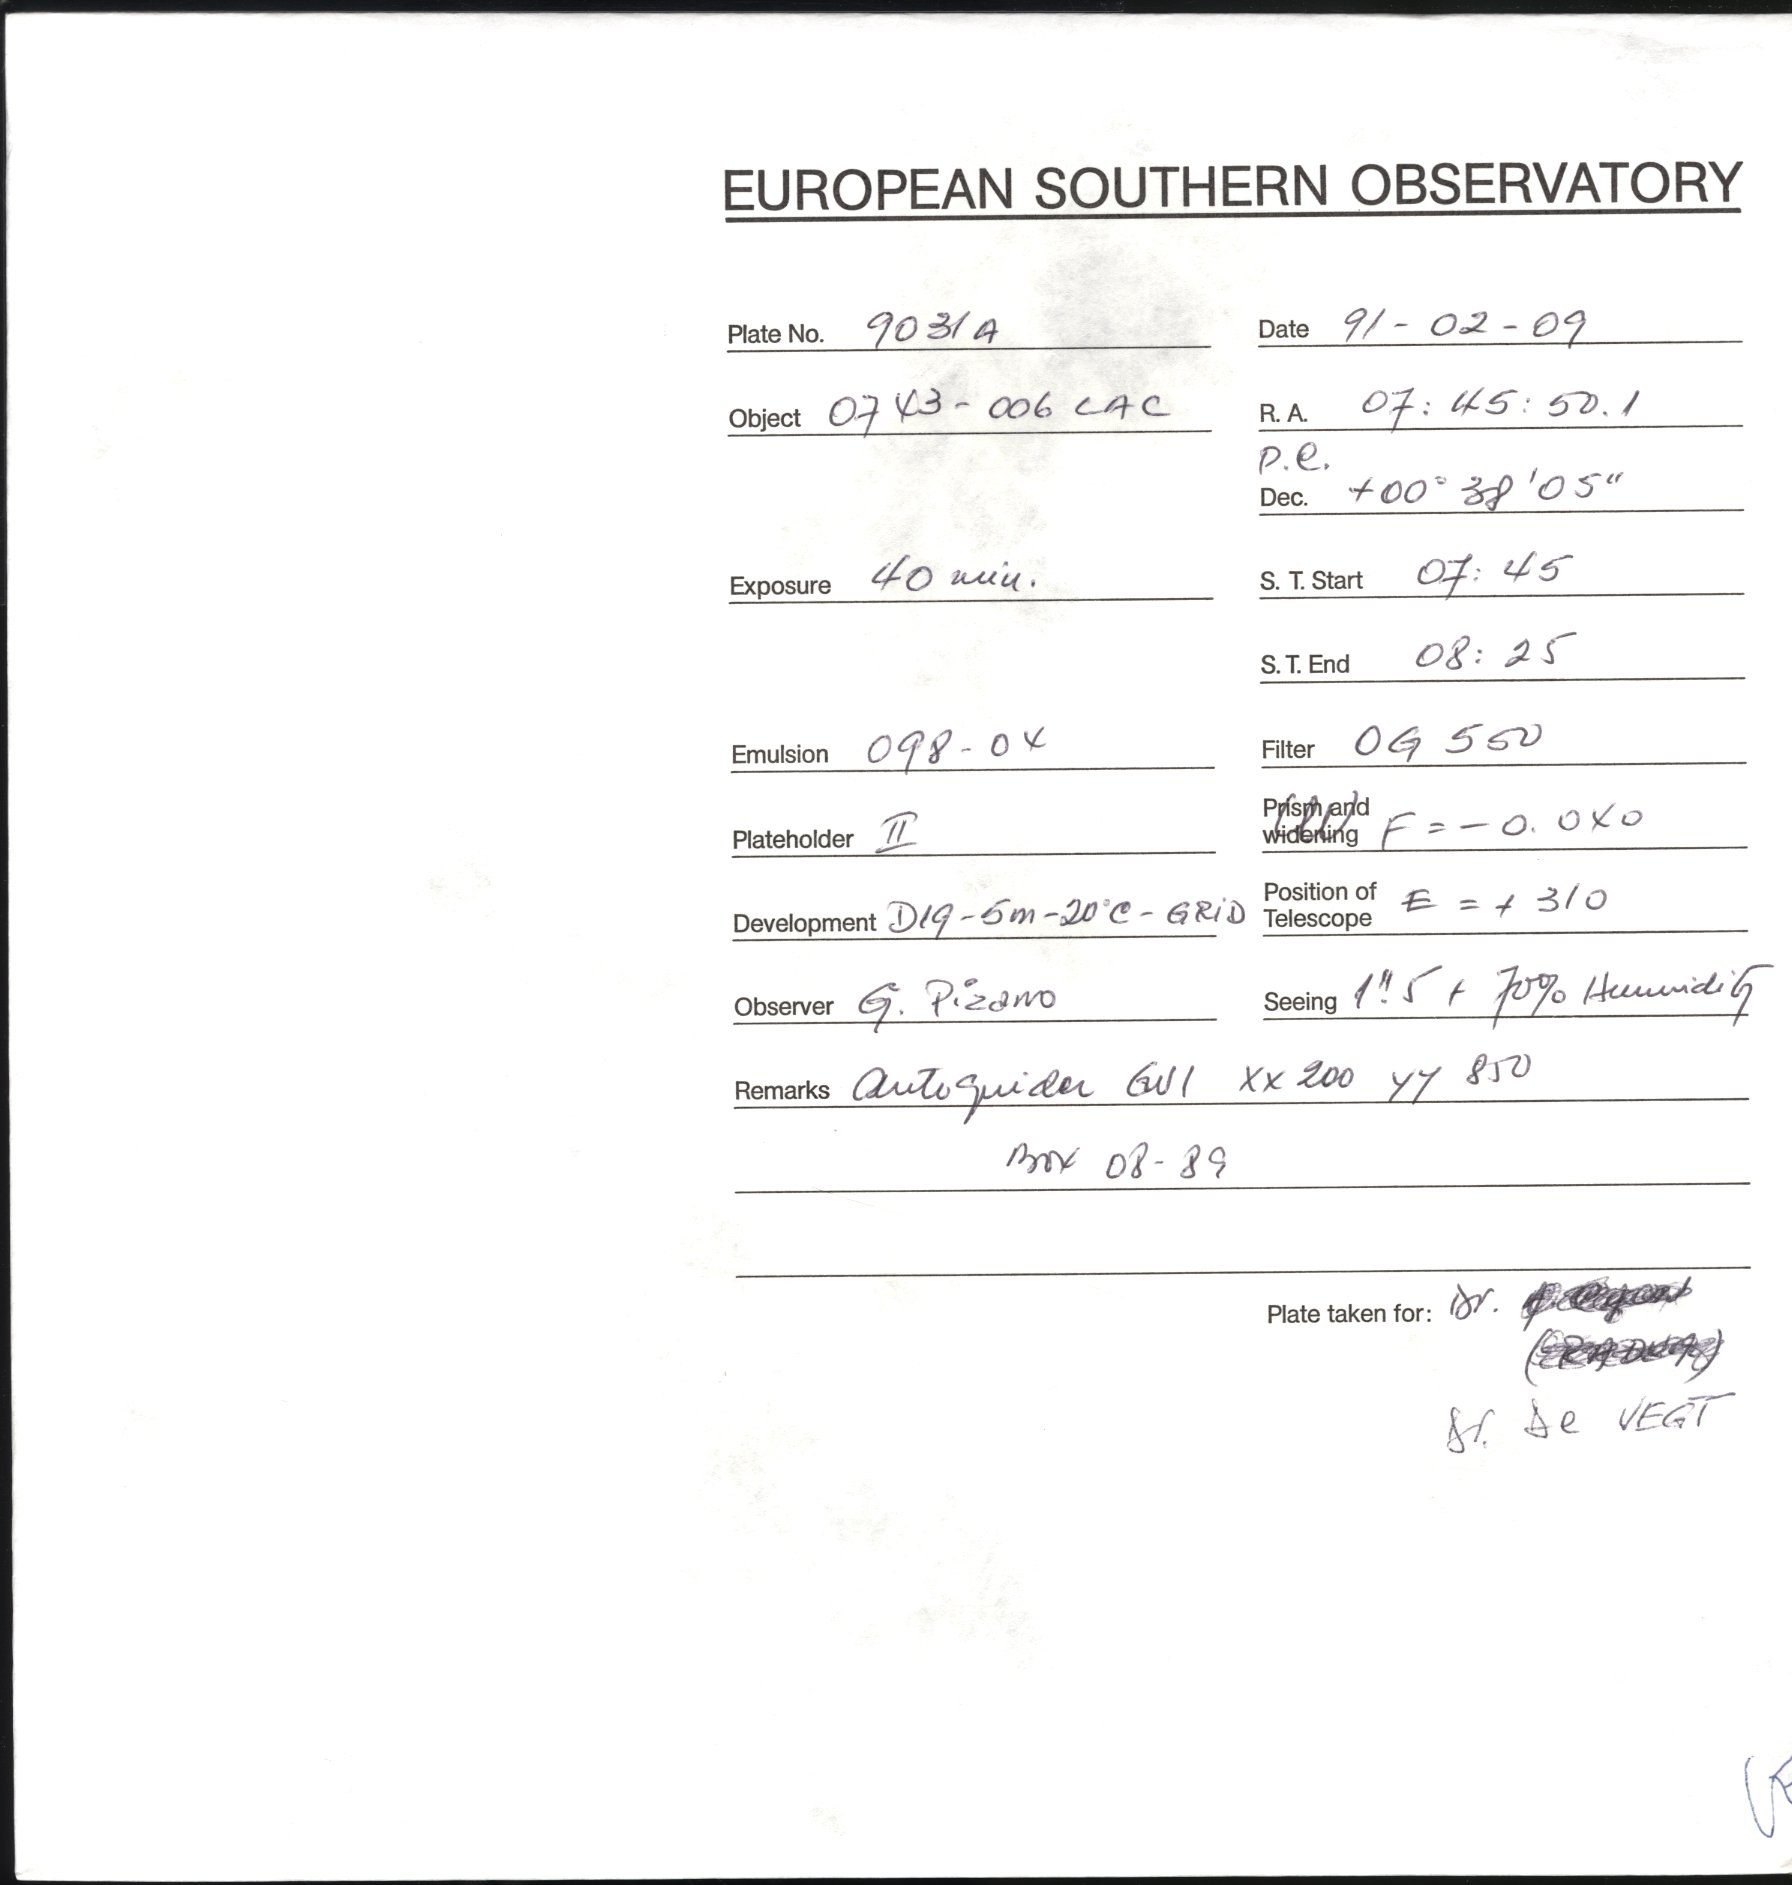 EUROPEAN SOUTHERN OBSERVATORY
Plate No. 9031A Date 91-02-09
Object 0743-006 LAC R. A. 07:45:50.1
p.e.
Dec. +00° 38' 05"
Exposure 40 min. S. T. Start 07:45
S. T. End 08:25
Emulsion 098-04 Filter OG 550
Plateholder II Prism and widening F = -0.040
Development D19-5m-20°C-GRID Position of Telescope E = + 310
Observer G. Pizarro Seeing 1".5 + 70% Humidity
Remarks Autoguider GV1 XX 200 YY 850
Box 08-89
Plate taken for: Dr.
Dr. De VEGT